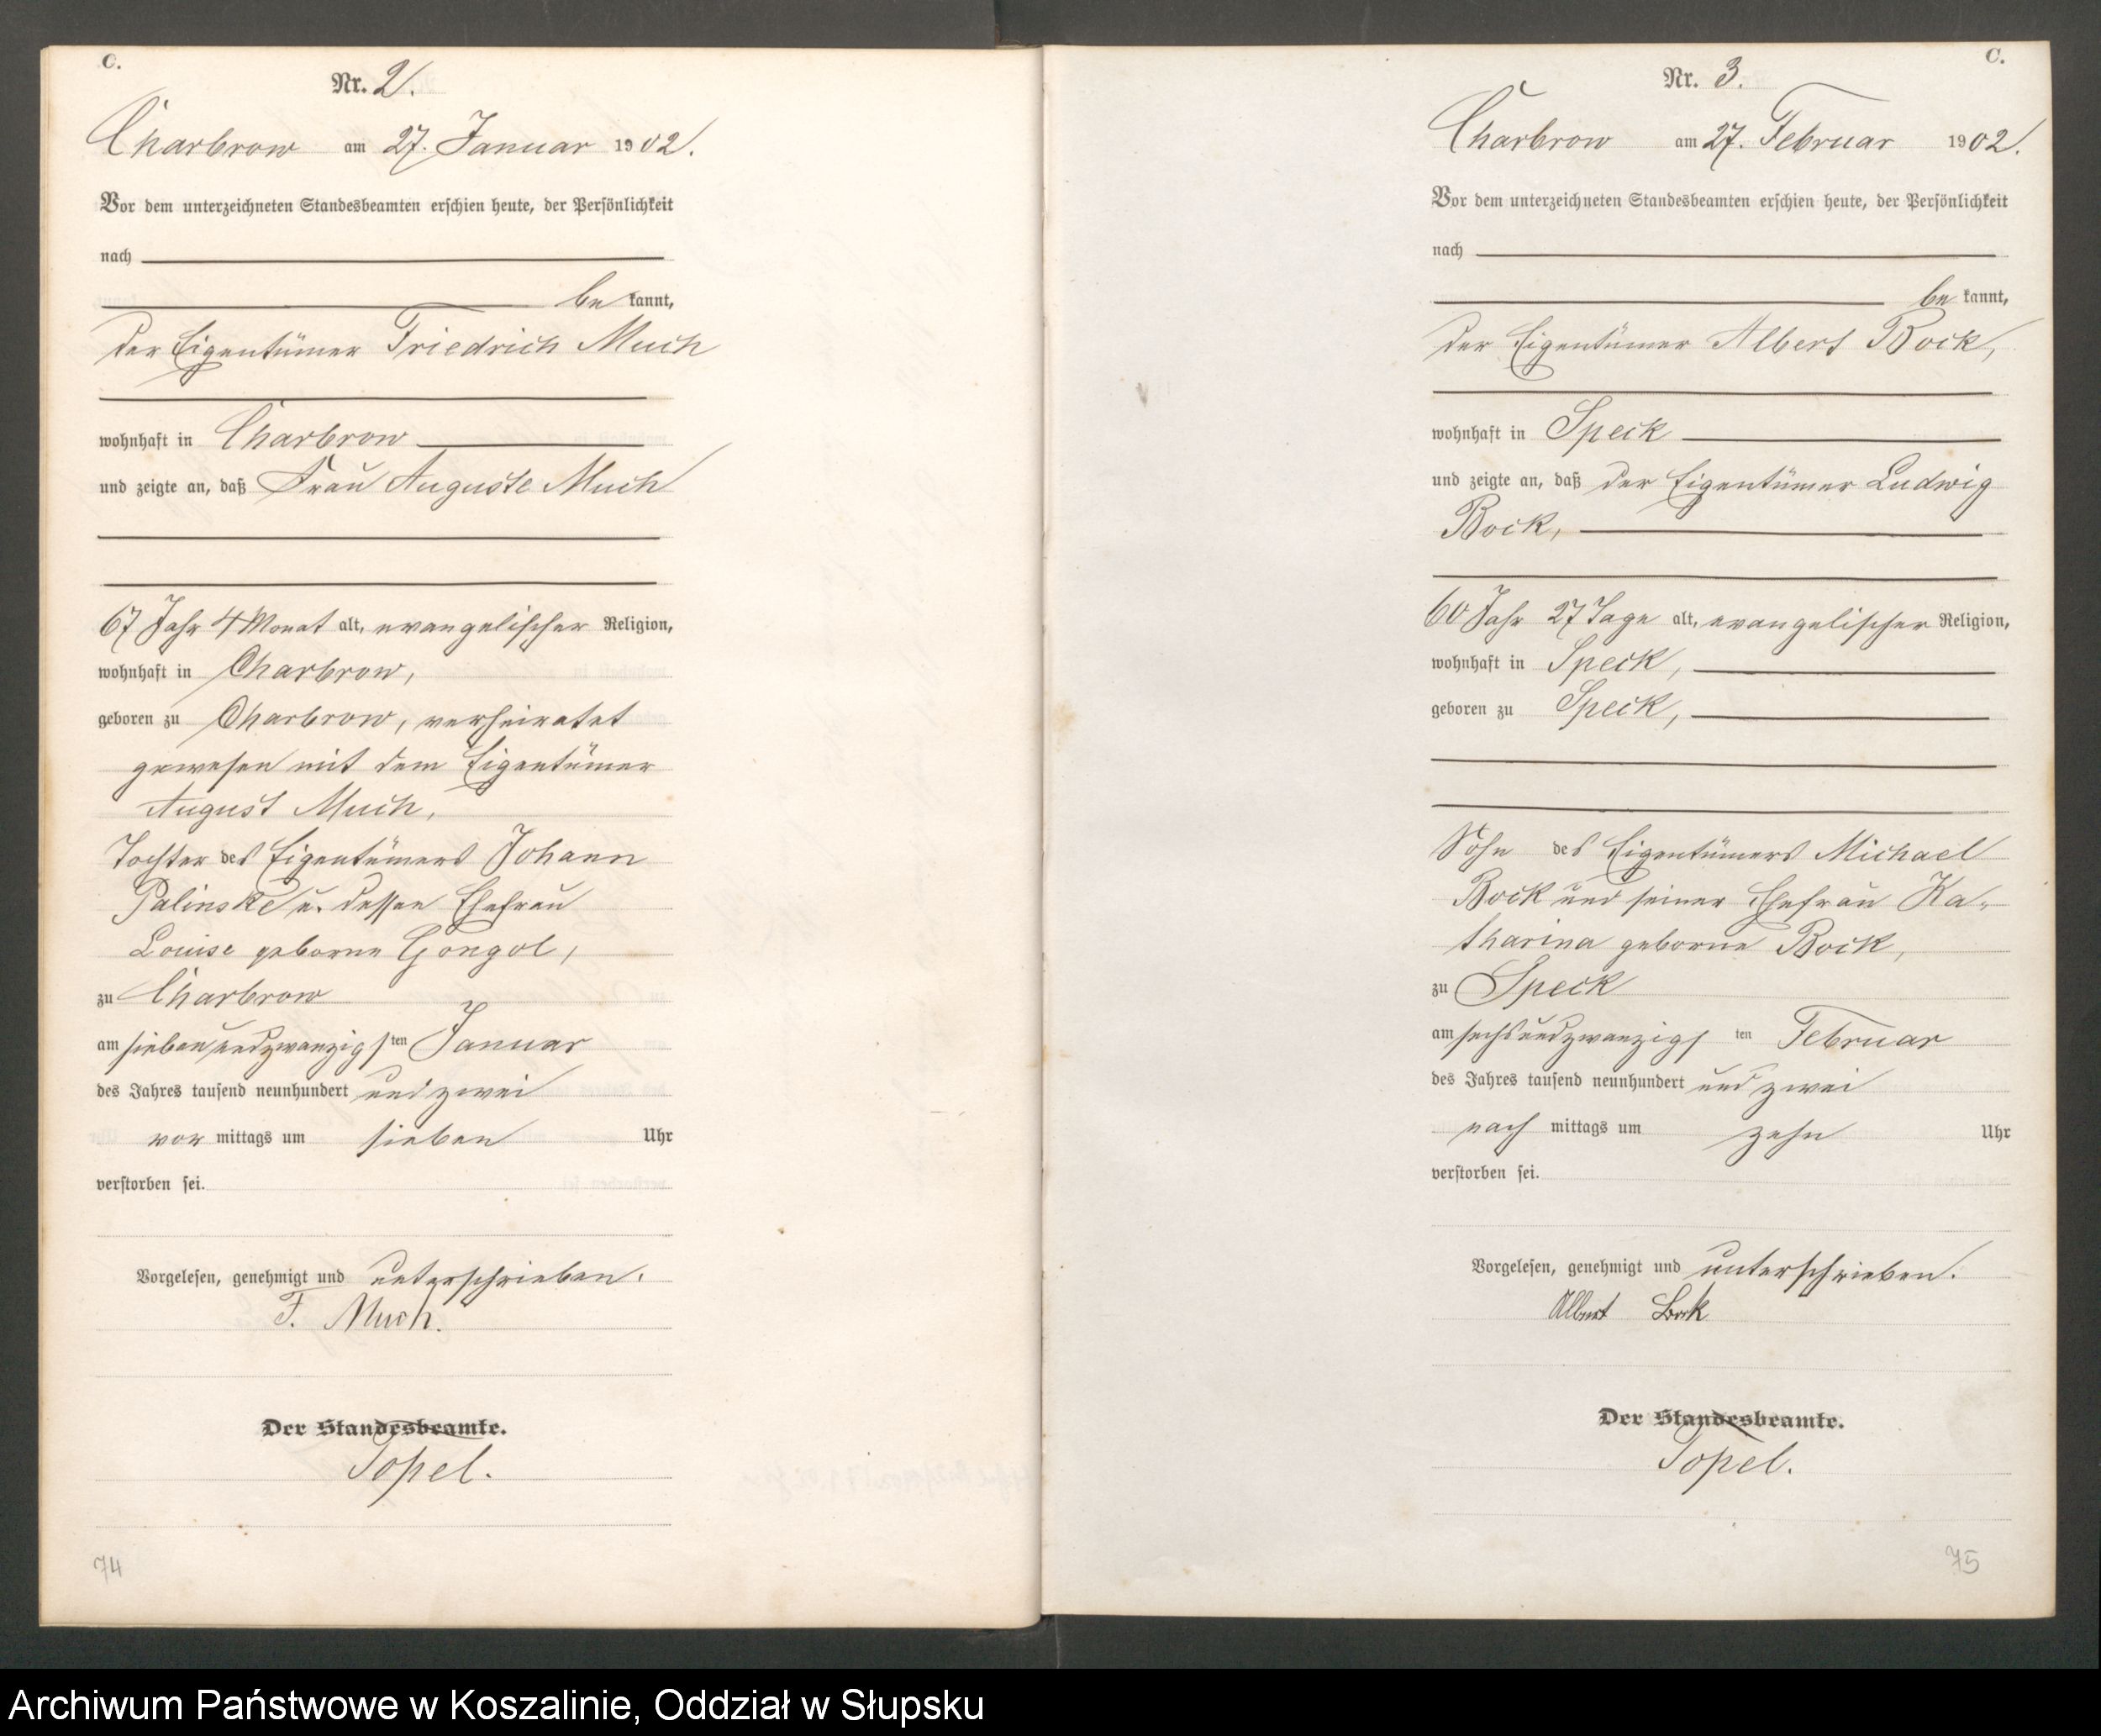 C.
Nr. 2.
Charbrow am 27. Januar 1902.
Vor dem unterzeichneten Standesbeamten erschien heute, der Persönlichkeit
nach
be kannt,
der Eigentümer Friedrich Much
wohnhaft in Charbrow
und zeigte an, daß Frau Auguste Much
67 Jahr 4 Monat alt, evangelischer Religion,
wohnhaft in Charbrow,
geboren zu Charbrow, verheiratet
gewesen mit dem Eigentümer
August Much,
Tochter des Eigentümers Johann
Palinske u. dessen Ehefrau
Louise geborne Gongol,
zu Charbrow
am siebenundzwanzigsten Januar
des Jahres tausend neunhundert und zwei
vor mittags um sieben Uhr
verstorben sei.
Vorgelesen, genehmigt und unterschrieben.
F. Much.
Der Standesbeamte.
Topel.
74
C.
Nr. 3.
Charbrow am 27. Februar 1902.
Vor dem unterzeichneten Standesbeamten erschien heute, der Persönlichkeit
nach
be kannt,
der Eigentümer Albert Bock,
wohnhaft in Speck
und zeigte an, daß der Eigentümer Ludwig
Bock,
60 Jahr 27 Tage alt, evangelischer Religion,
wohnhaft in Speck,
geboren zu Speck,
Sohn des Eigentümers Michael
Bock und seiner Ehefrau Ka-
tharina geborne Bock,
zu Speck
am sechsundzwanzigs ten Februar
des Jahres tausend neunhundert und zwei
nach mittags um zehn Uhr
verstorben sei.
Vorgelesen, genehmigt und unterschrieben.
Albert Bock
Der Standesbeamte.
Topel.
75
Archiwum Państwowe w Koszalinie, Oddział w Słupsku